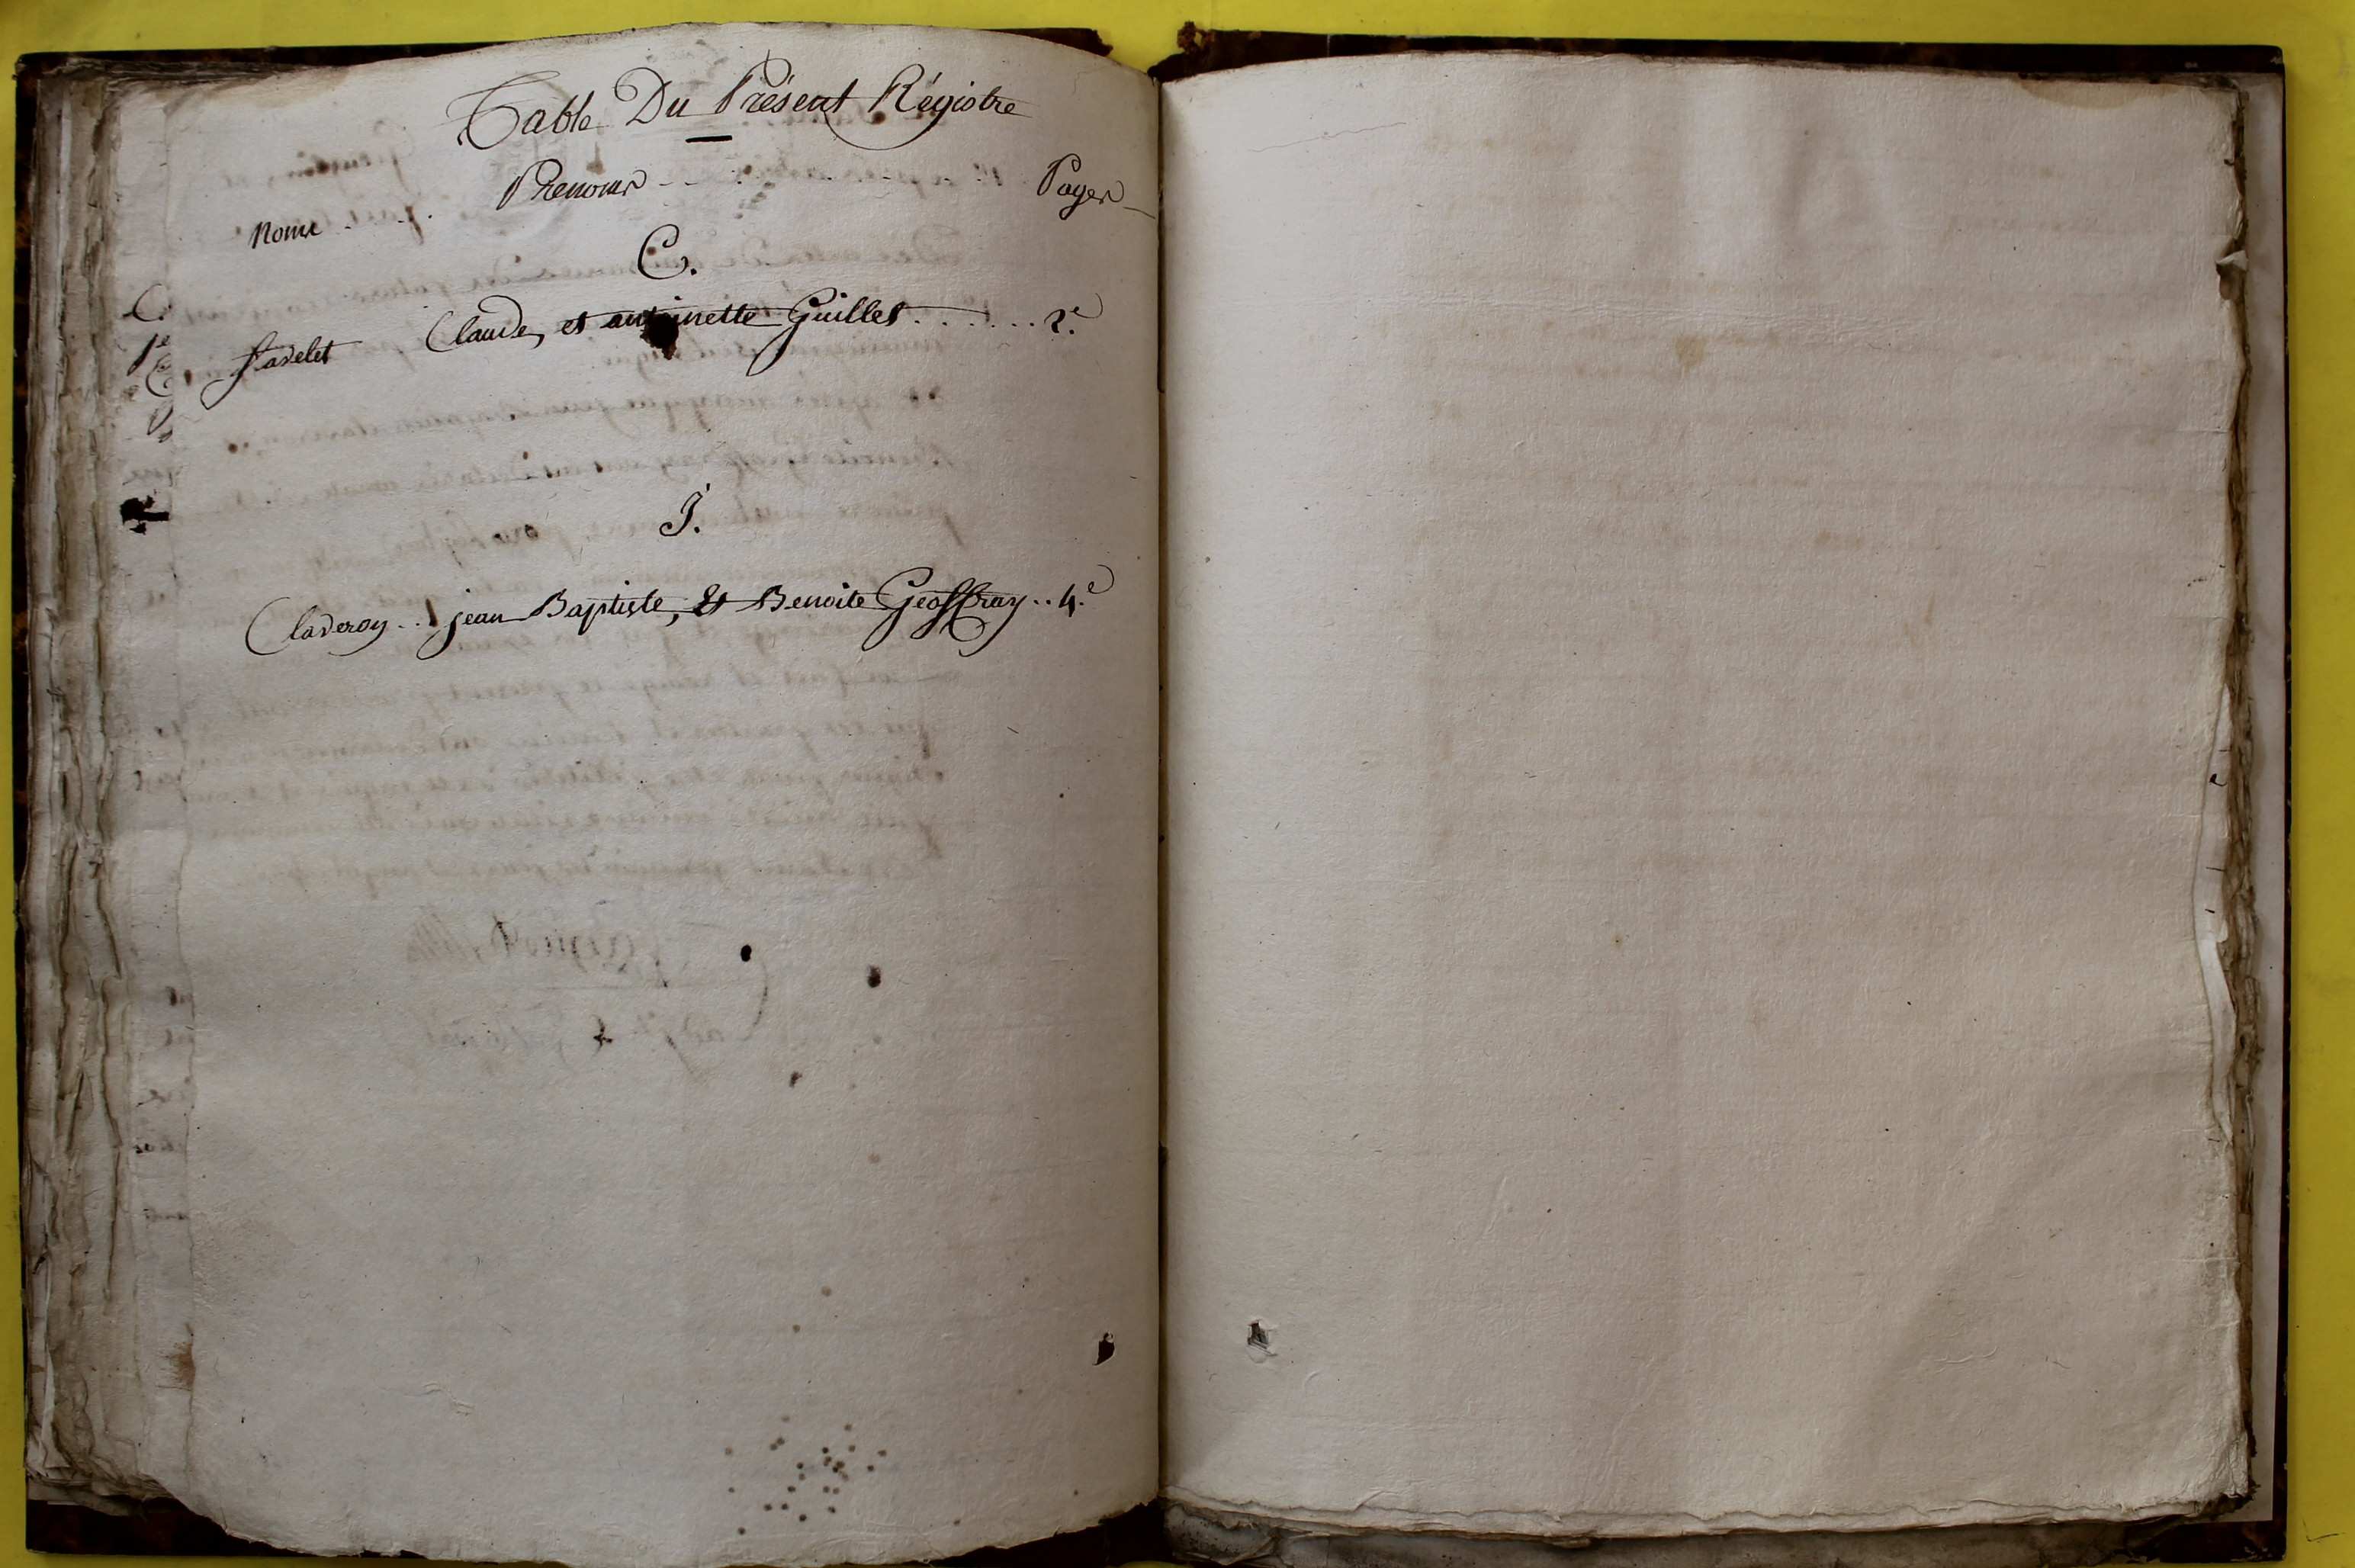 Table Du Présent Régistre
Noms - - . Prenoms - - . . . . . Pages -
C.
fadelet Claude, et antoinette Guillet . . . . . . 2.e
J.
Claderoy . . jean Baptiste, & Benoite Geoffray . . 4.e